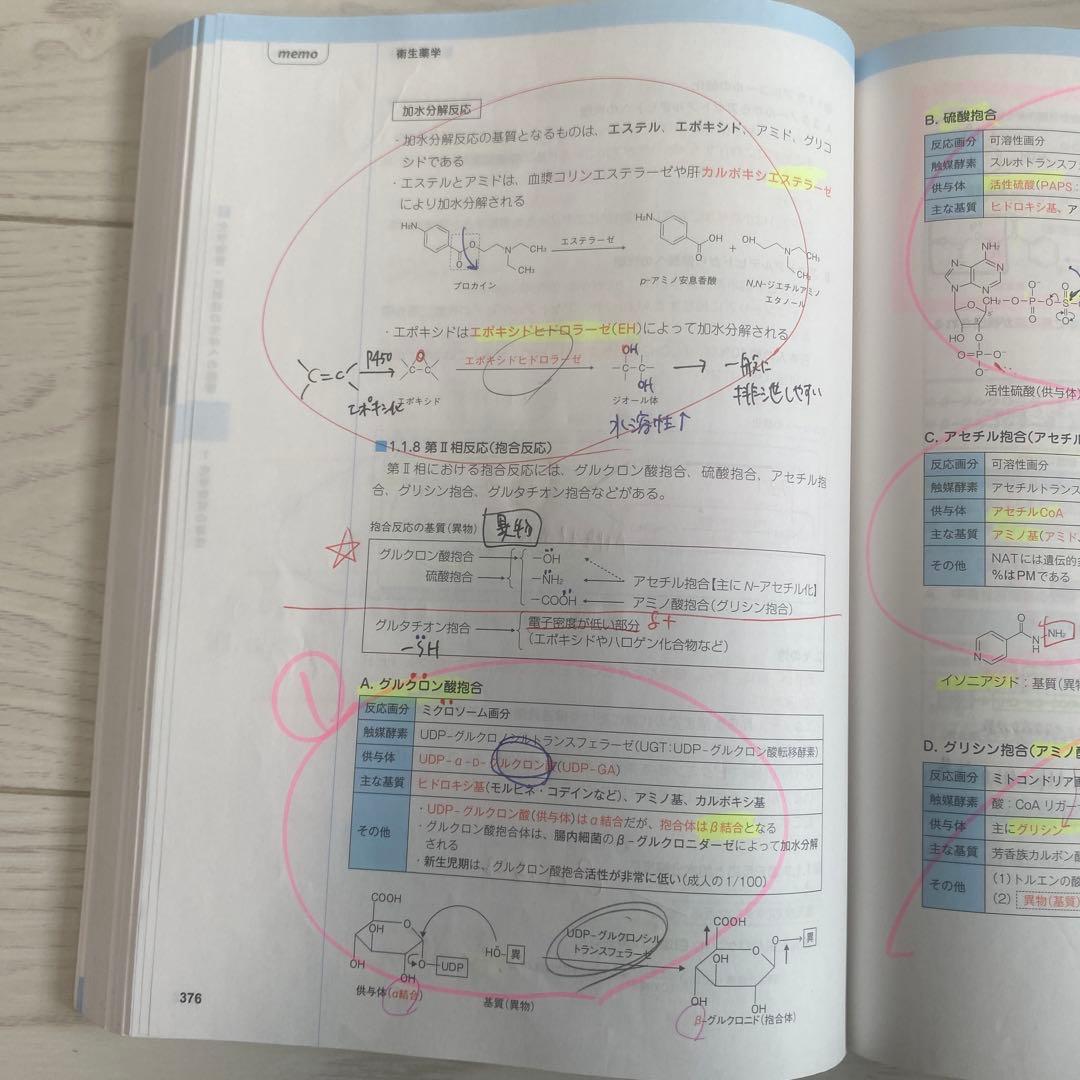 memo
衛生薬学
加水分解反応
・加水分解反応の基質となるものは、エステル、エポキシド、アミド、グリコ
シドである
・エステルとアミドは、血漿コリンエステラーゼや肝カルボキシエステラーゼ
により加水分解される
H₂N
O
O
N
CH₃
CH₃
プロカイン
エステラーゼ
H₂N
OH
O
p-アミノ安息香酸
+
OH
N
CH₃
CH₃
N,N-ジエチルアミノ
エタノール
・エポキシドはエポキシドヒドロラーゼ(EH)によって加水分解される
C=C
P450
エポキシ化
O
C-C
エポキシド
エポキシドヒドロラーゼ
OH
C-C
OH
ジオール体
水溶性↑
一般に
排泄しやすい
1.1.8 第Ⅱ相反応(抱合反応)
第Ⅱ相における抱合反応には、グルクロン酸抱合、硫酸抱合、アセチル抱
合、グリシン抱合、グルタチオン抱合などがある。
抱合反応の基質(異物)
異物
グルクロン酸抱合
硫酸抱合
-OH
-NH₂
-COOH
アセチル抱合【主にN-アセチル化】
アミノ酸抱合(グリシン抱合)
グルタチオン抱合
-SH
電子密度が低い部分 δ+
(エポキシドやハロゲン化合物など)
①
A. グルクロン酸抱合
反応画分 ミクロソーム画分
触媒酵素 UDP-グルクロノシルトランスフェラーゼ(UGT:UDP-グルクロン酸転移酵素)
供与体 UDP-α-D-グルクロン酸(UDP-GA)
主な基質 ヒドロキシ基(モルヒネ・コデインなど)、アミノ基、カルボキシ基
その他
・UDP-グルクロン酸(供与体)はα結合だが、抱合体はβ結合となる
・グルクロン酸抱合体は、腸内細菌のβ-グルクロニダーゼによって加水分解
される
・新生児期は、グルクロン酸抱合活性が非常に低い(成人の1/100)
COOH
O
OH
OH
OH
O-UDP
供与体(α結合)
HO-異
基質(異物)
UDP-グルクロノシル
トランスフェラーゼ
COOH
O
O
異
OH
OH
OH
β-グルクロニド(抱合体)
376
B. 硫酸抱合
反応画分 可溶性画分
触媒酵素 スルホトランスフ
供与体 活性硫酸(PAPS:
主な基質 ヒドロキシ基、ア
NH₂
N
N
N
N
CH₂-O-P-O-S
O
HO
O
O-P-O⁻
O⁻
活性硫酸(供与体)
C. アセチル抱合(アセチル
反応画分 可溶性画分
触媒酵素 アセチルトランス
供与体 アセチルCoA
主な基質 アミノ基(アミド、
その他 NATには遺伝的
%はPMである
O
N
H
NH₂
N
イソニアジド:基質(異物
D. グリシン抱合(アミノ酸
反応画分 ミトコンドリア画
触媒酵素 酸:CoAリガー
供与体 主にグリシン
主な基質 芳香族カルボン酸
その他 (1)トルエンの酸
(2) 異物(基質)